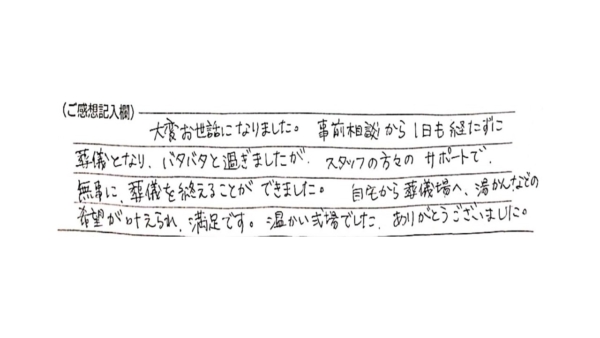 (ご感想記入欄)
大変お世話になりました。 事前相談から1日も経たずに
葬儀となり、バタバタと過ぎましたが、スタッフの方々の サポートで、
無事に、葬儀を終えることが できました。 自宅から葬儀場へ、湯かんなどの
希望が叶えられ、満足です。温かい式場でした。ありがとうございました。